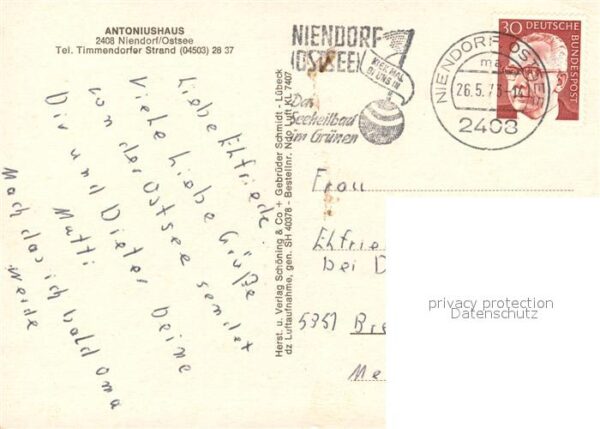 ANTONIUSHAUS
2408 Niendorf/Ostsee
Tel. Timmendorfer Strand (04503) 28 37
Liebe Elfriede.
Viehle liebe Grüße
von der Ostsee sendet
Dir und Dieter Deine
Mutti
Mach das ich bald Oma
werde
Herst. u. Verlag Schöning & Co + Gebrüder Schmidt - Lübeck
dz Luftaufnahme, gen. SH 40378 - Bestellnr. Ndo Luft KL 7407
NIENDORF
(OSTSEE)
KIEK MAL
BI UNS IN
Das
Seeheilbad
im Grünen
NIENDORF, OSTSEE
26.5.73
2408
30 DEUTSCHE
BUNDESPOST
Frau
Elfrie
bei D
5351 Bre
Me
privacy protection
Datenschutz